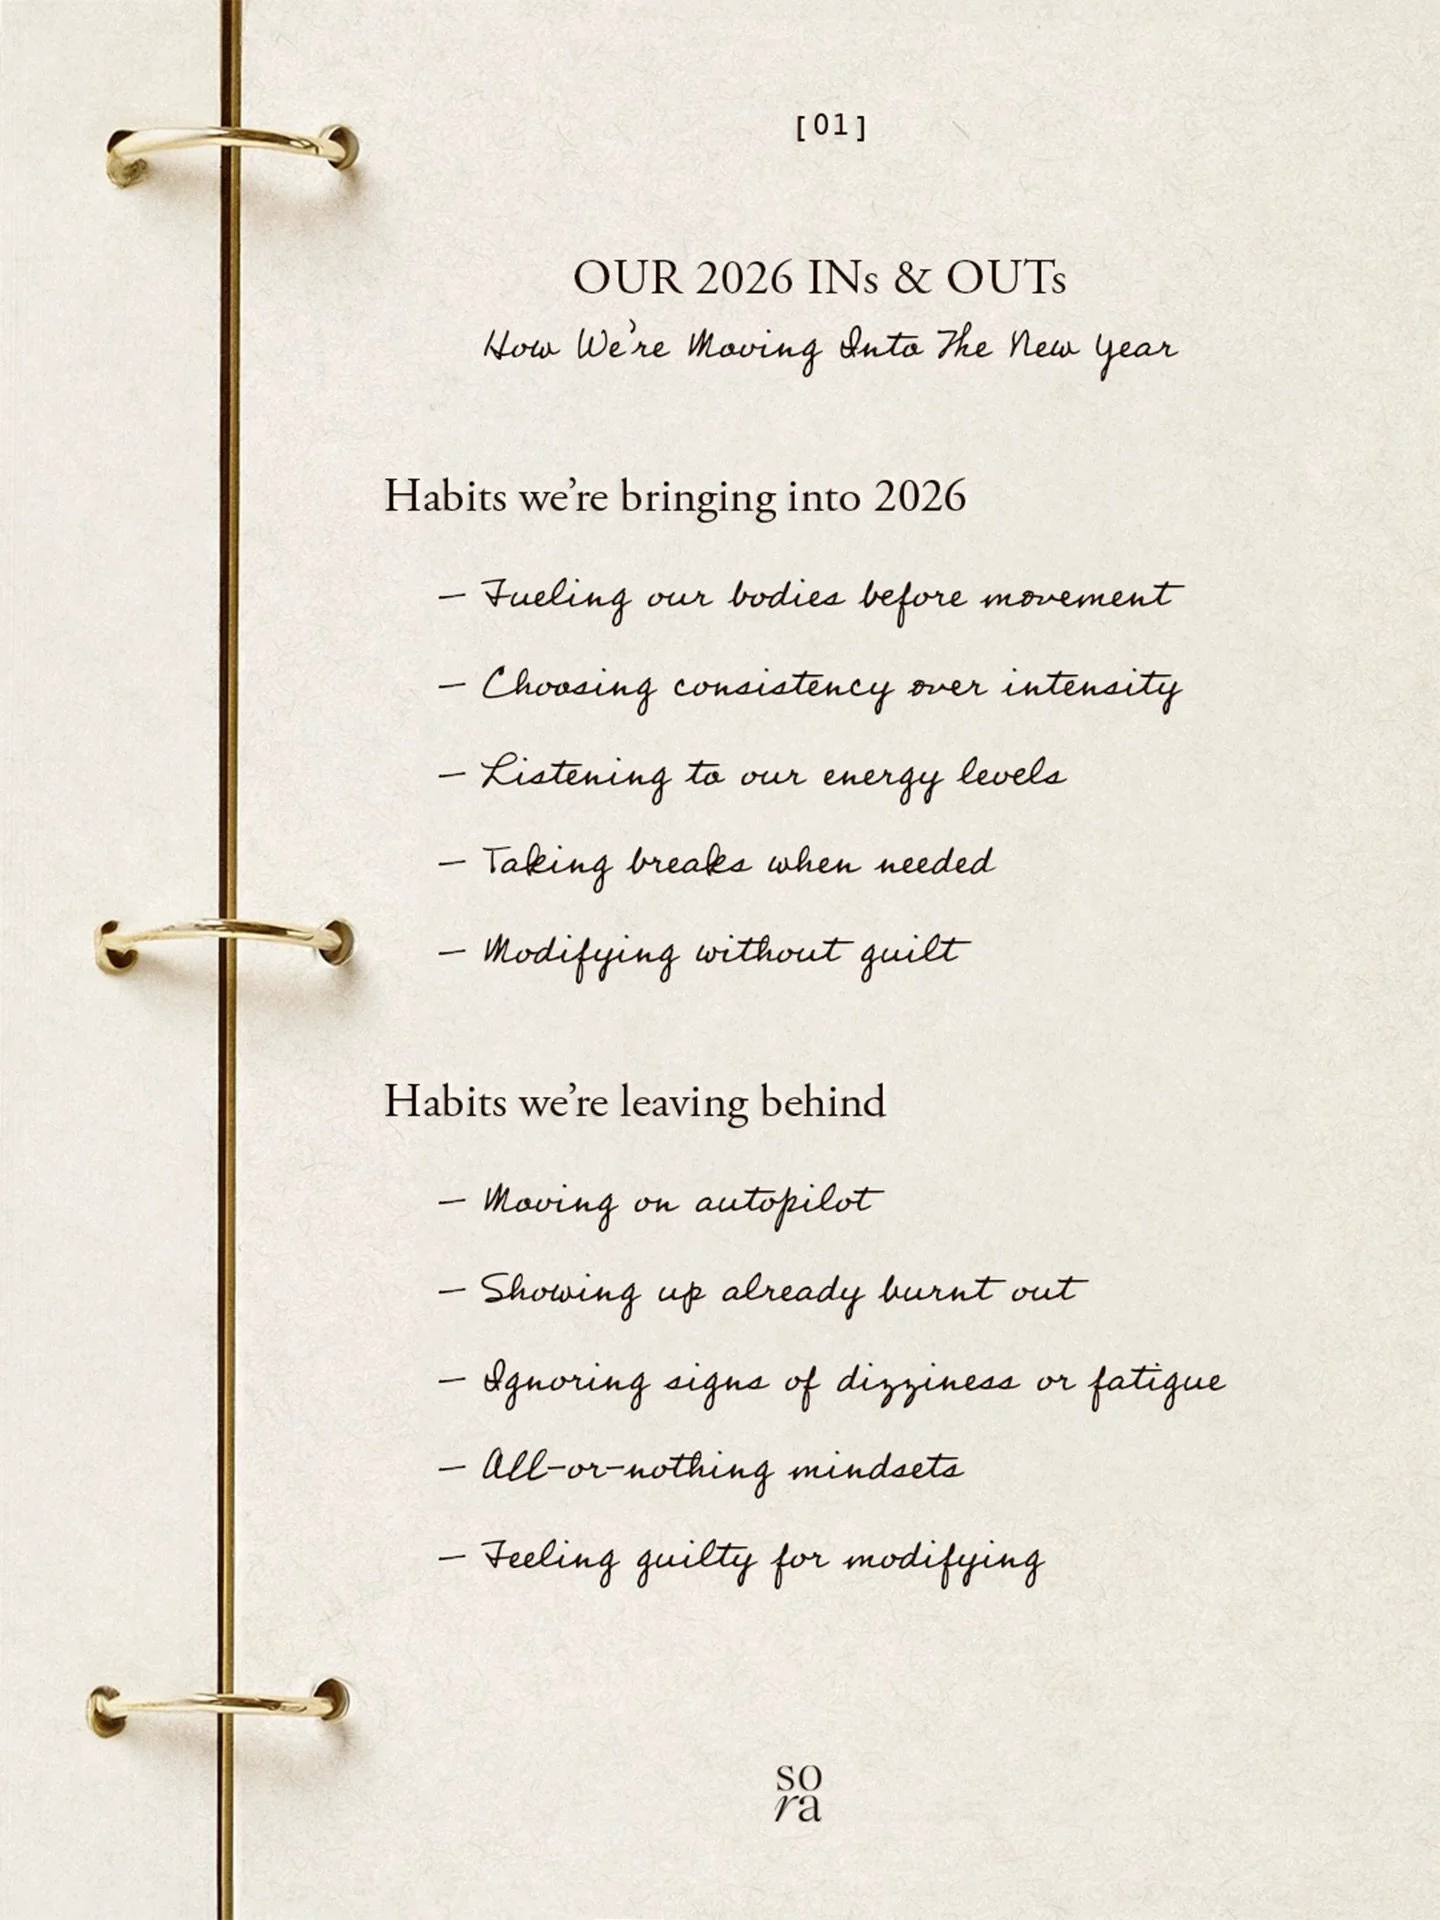 [01]
OUR 2026 INs & OUTs
How We're Moving Into The New Year
Habits we're bringing into 2026
– Fueling our bodies before movement
– Choosing consistency over intensity
– Listening to our energy levels
– Taking breaks when needed
– Modifying without guilt
Habits we're leaving behind
– Moving on autopilot
– Showing up already burnt out
– Ignoring signs of dizziness or fatigue
– All-or-nothing mindsets
– Feeling guilty for modifying
so
ra